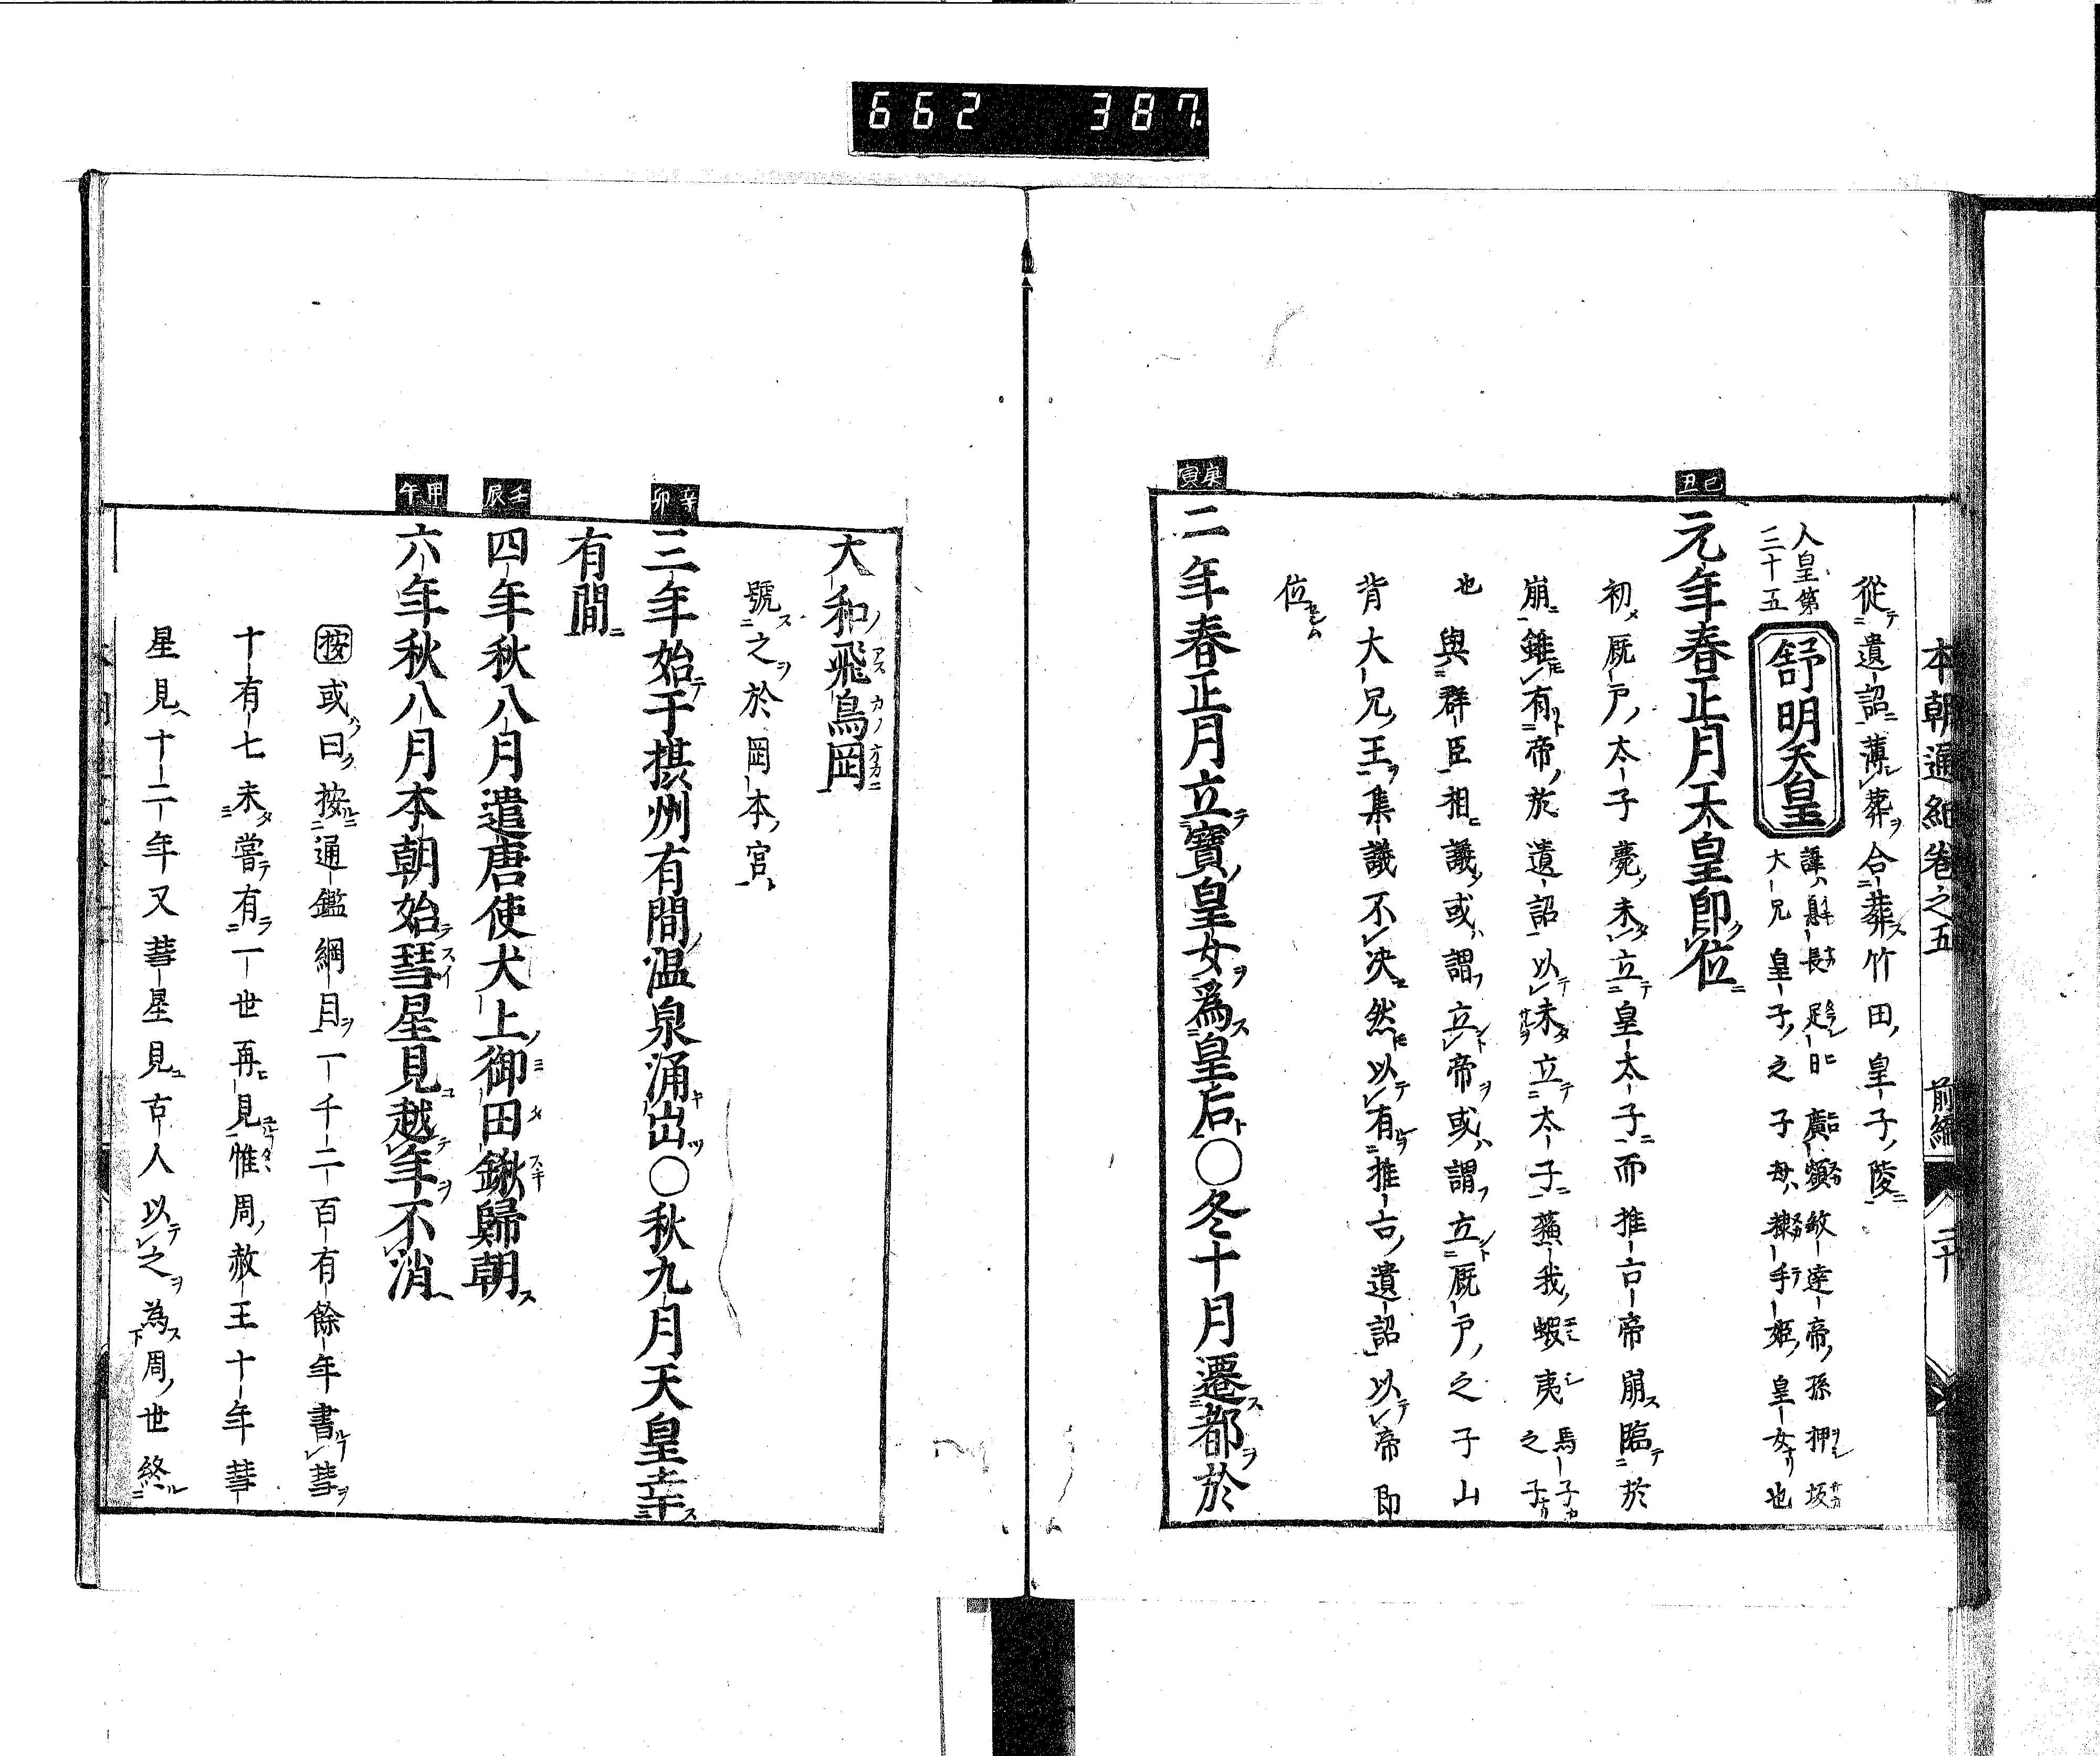 662 387
本朝通紀卷之五 前編 二十
從遺詔薄葬合葬竹田皇子陵
人皇第三十五 舒明天皇 諱息長足日廣額敏達帝孫押坂大兄皇子之子母糠手姫皇女也
己丑
元年春正月天皇即位
初厩戸太子薨未立皇太子而推古帝崩臨於
崩雖有帝於遺詔以未立太子蘓我蝦夷馬子之子
也與群臣相議或謂立帝或謂立厩戸之子山
背大兄王集議不决然以有推古遺詔以帝即
位
庚寅
二年春正月立寶皇女爲皇后○冬十月遷都於
大和飛鳥岡
號之於岡本宮
辛卯
三年始于摂州有間温泉涌出○秋九月天皇幸
有間
壬辰
四年秋八月遣唐使犬上御田鍬歸朝
甲午
六年秋八月本朝始彗星見越年不消
按或曰按通鑑綱目一千二百有餘年書彗
十有七未嘗有一世再見惟周赧王十年彗
星見十二年又彗星見古人以之為周世終